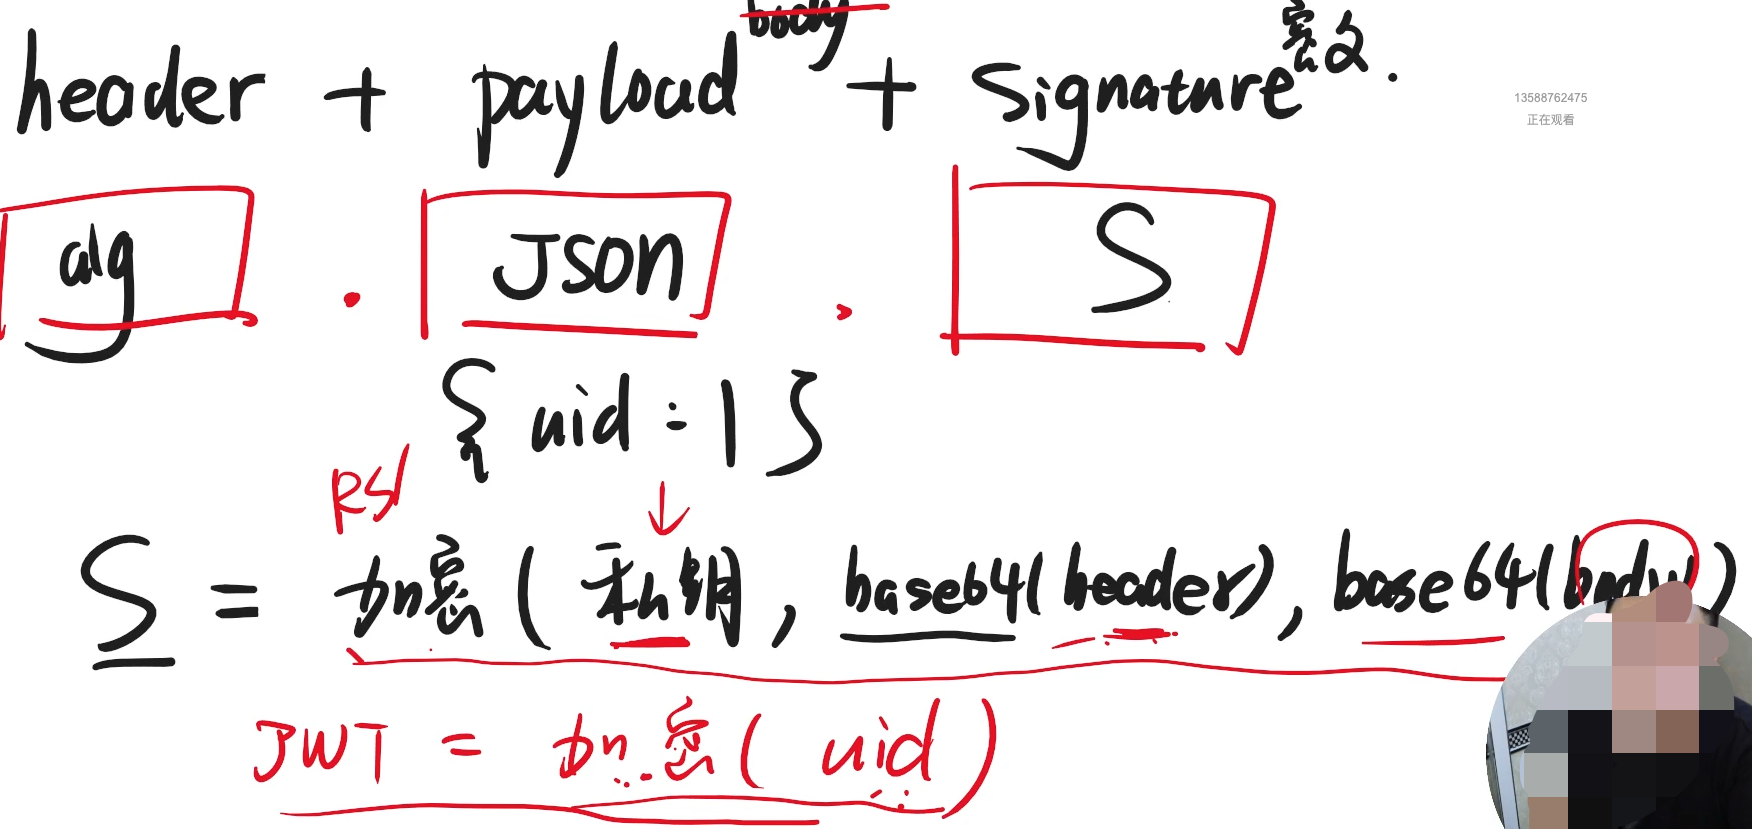 body
header + payload + Signature 密文.
13588762475
正在观看
alg . Json . S
{ uid : 1 }
RSA
S = 加密 ( 私钥, base64(header), base64(body) )
JWT = 加密 ( uid )